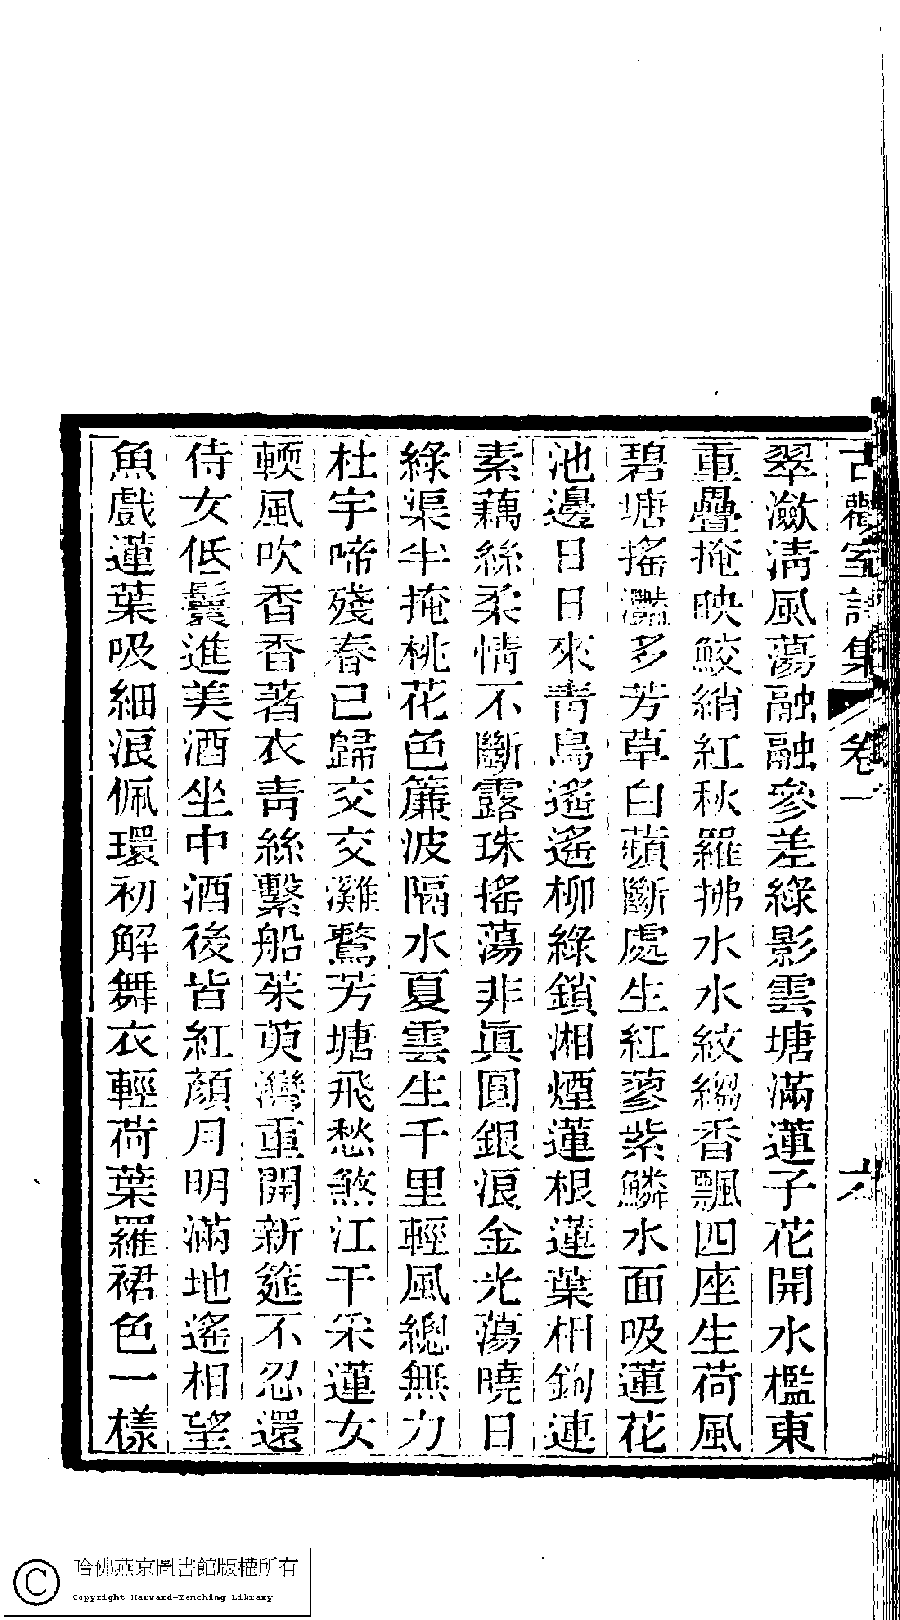 古歡室詩集 卷一 六
翠瀲淸風蕩融融參差綠影雲塘滿蓮子花開水檻東
重疊掩映鮫綃紅秋羅拂水水紋縐香飄四座生荷風
碧塘搖灩多芳草白蘋斷處生紅蓼紫鱗水面吸蓮花
池邊日日來靑鳥遙遙柳綠鎖湘煙蓮根蓮葉相鉤連
素藕絲柔情不斷露珠搖蕩非眞圓銀浪金光蕩曉日
綠渠半掩桃花色簾波隔水夏雲生千里輕風總無力
杜宇啼殘春已歸交交灘鷺芳塘飛愁煞江干采蓮女
輭風吹香香著衣靑絲繫船茱萸灣重開新筵不忍還
侍女低鬟進美酒坐中酒後皆紅顏月明滿地遙相望
魚戲蓮葉吸細浪佩環初解舞衣輕荷葉羅裙色一樣
哈佛燕京圖書館版權所有
Copyright Harvard-Yenching Library